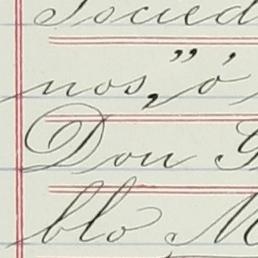 Socied
nos," ó
Don G
blo M